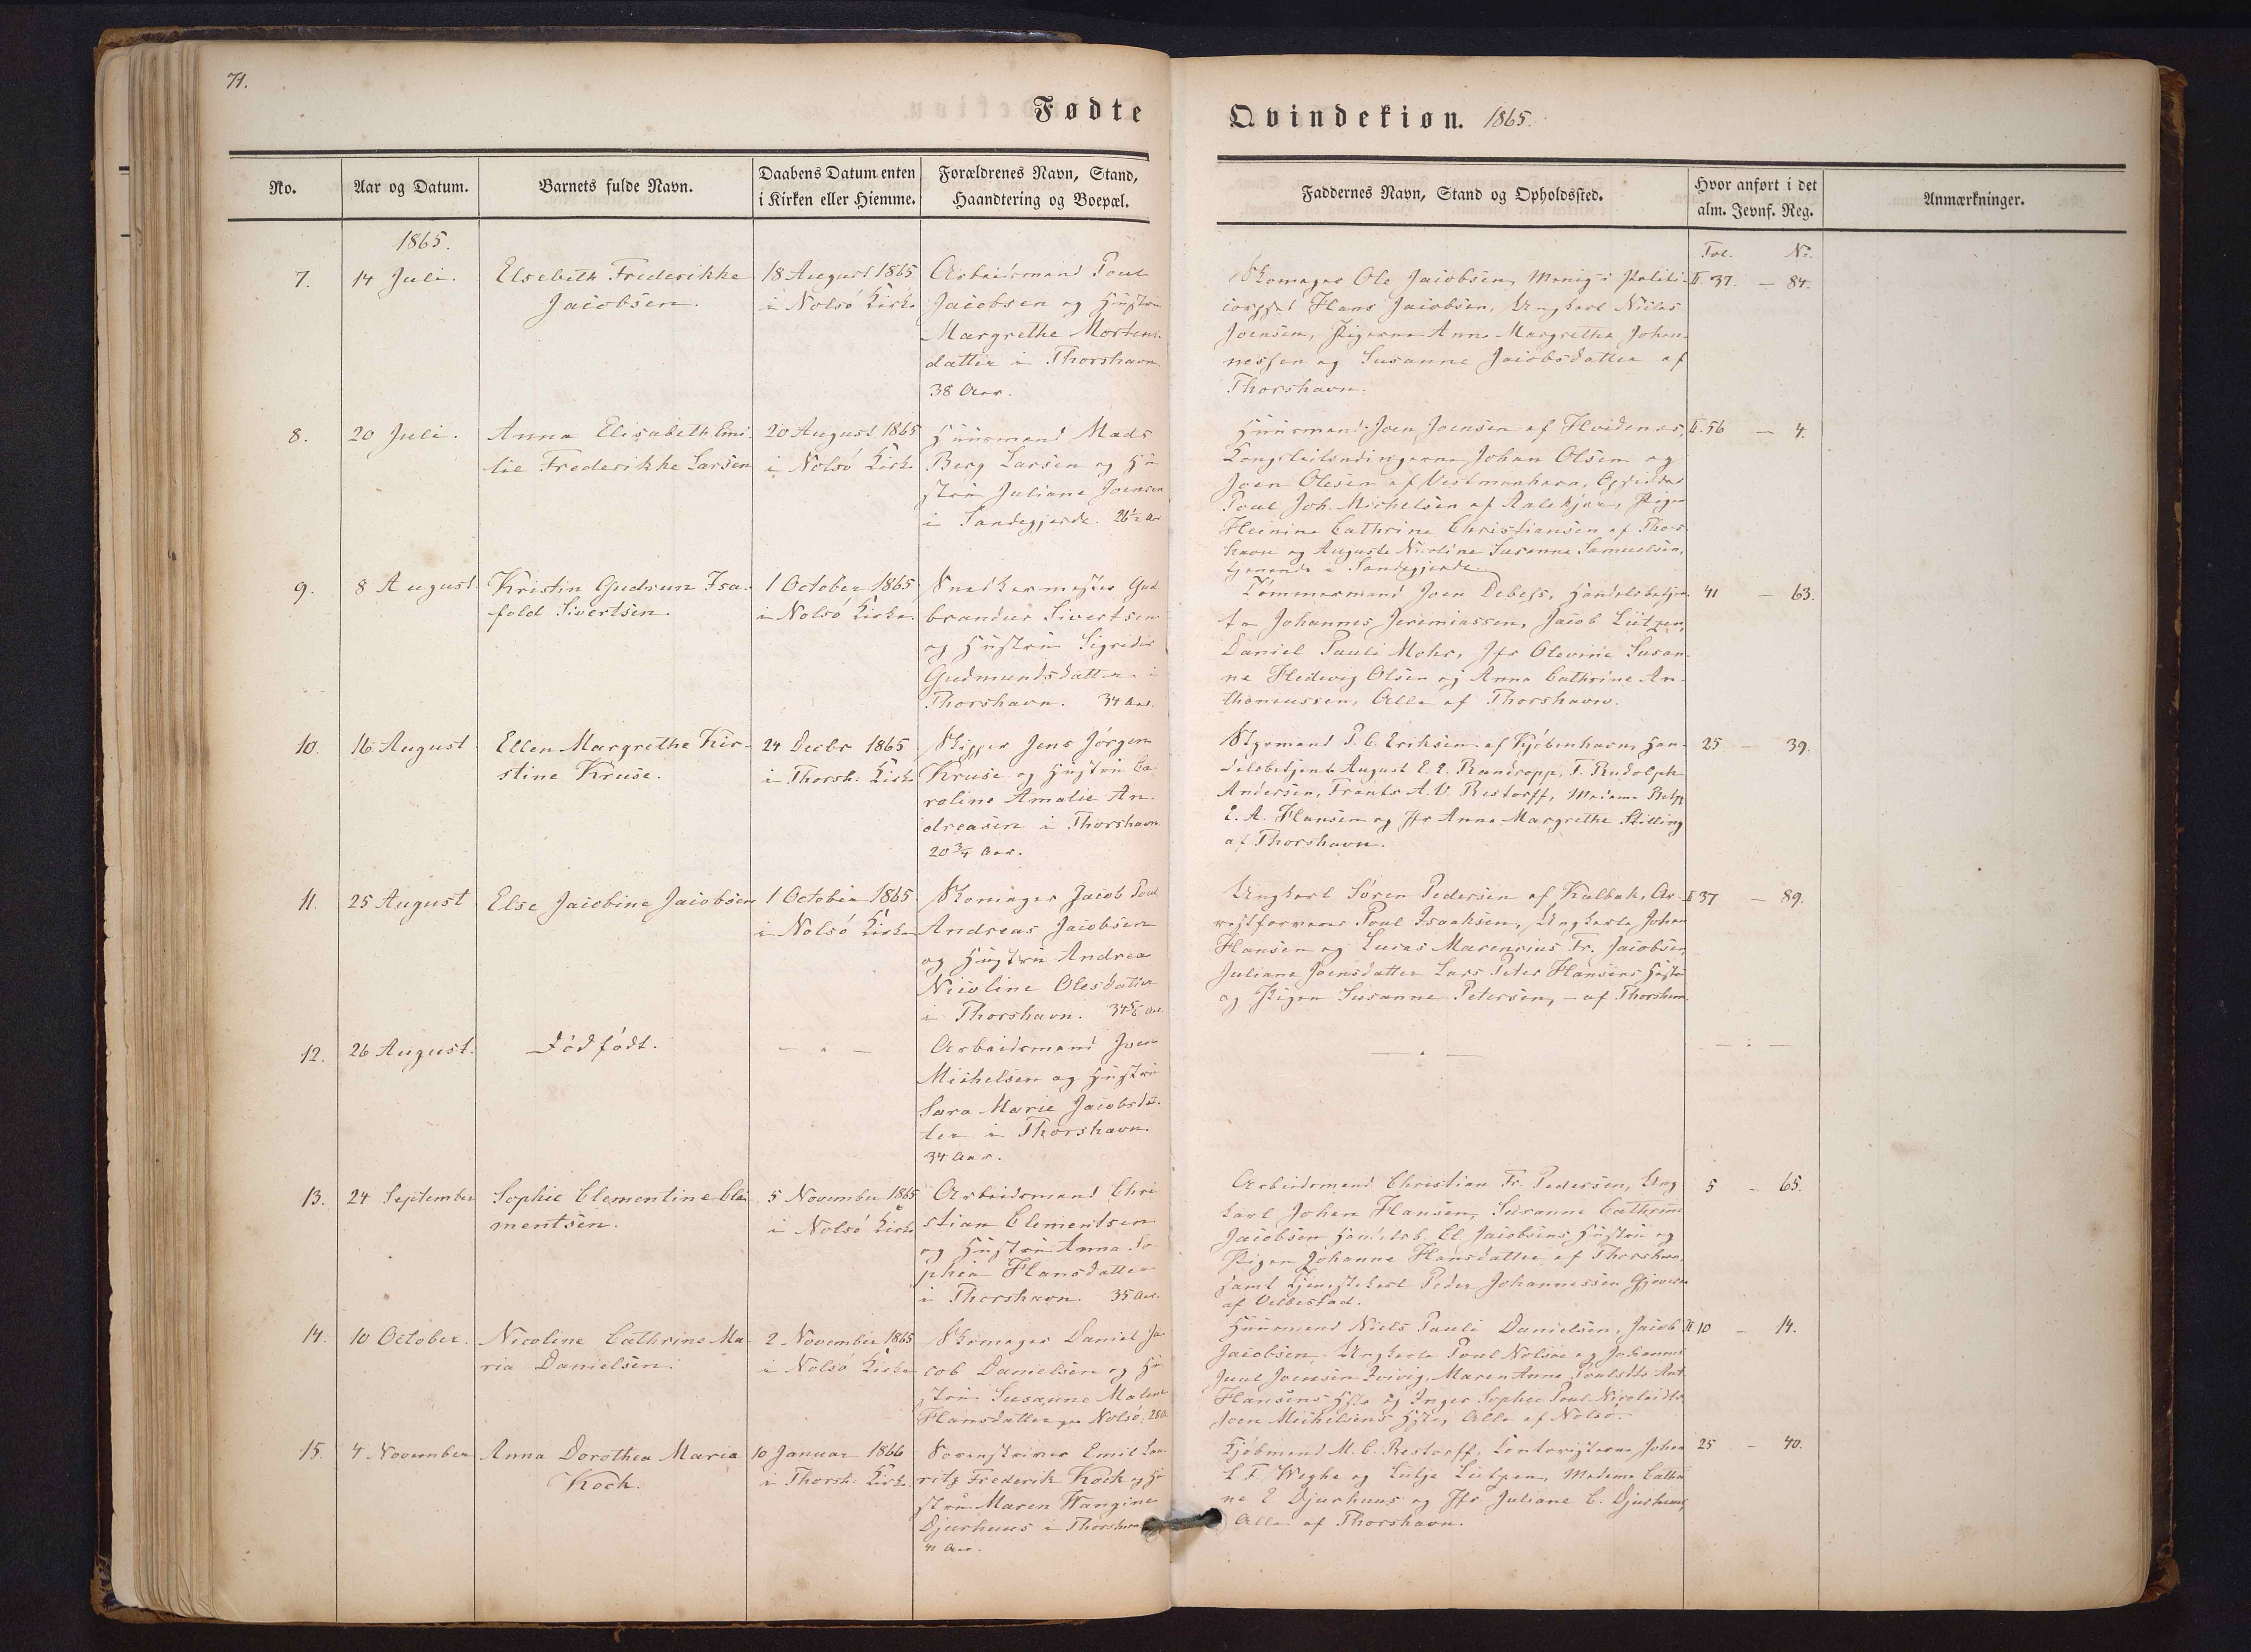 71.
Fødte
Qvindekiøn. 1865.
No.
Aar og Datum.
Barnets fulde Navn.
Daabens Datum enten
i Kirken eller Hiemme.
Forældrenes Navn, Stand,
Haandtering og Boepæl.
Faddernes Navn, Stand og Opholdssted.
Hvor anført i det
alm. Jevnf. Reg.
Anmærkninger.
1865.
Fol. No.
7.
14 Juli.
Elsebeth Frederikke
Jacobsen.
18 August 1865
i Nolsö Kirke
Arbeidsmand Poul
Jacobsen og Hustru
Margrethe Mortens-
datter i Thorshavn
38 Aar.
Skomager Ole Jacobsen, Menig i Politi-
corpset Hans Jacobsen, Ungkarl Niclas
Joensen, Pigerne Anna Margrethe Johan-
nessen og Susanne Jacobsdatter af
Thorshavn.
II 37. — 84.
8.
20 Juli.
Anna Elisabeth Emi-
lie Frederikke Larsen
20 August 1865
i Nolsö Kirke
Huusmand Mads
Berg Larsen og Hu-
stru Juliane Joensen
i Sandegjerde. 26½ Aar
Huusmand Joen Joensen af Hvidenæs,
Johan Olsen og
Joen Olesen af Vestmanhavn,
Poul Joh. Michelsen af Pigen
Heinine Cathrine Christiansen af Thors-
havn og Augusta Nicoline Susanna Samuelsen,
tjenende i Sandegjerde.
II. 56 — 4.
9.
8 August
Kristin Gudrun Isa-
fold Sivertsen.
1 October 1865
i Nolsö Kirke.
Snedkermester Gud-
brandur Sivertsen
og Hustru Sigridur
Gudmundsdatter i
Thorshavn. 34 Aar.
Tömmermand Joen Debess, Handelsbetjen-
te Johannes Jeremiassen, Jacob Lützen,
Daniel Pauli Mohr, Jfr Olevine Susan-
ne Hedevig Olsen og Anna Cathrine An-
thoniussen, Alle af Thorshavn.
41 — 63.
10.
16 August
Ellen Margrethe Kir-
stine Kruse.
24 Decbr 1865
i Thorsh. Kirke
Skipper Jens Jörgen
Kruse og Hustru Ca-
roline Amalie An-
dreasen i Thorshavn
20¾ Aar.
Styrmand P. C. Eriksen af Kjöbenhavn, Han-
delsbetjente August E. E. Randropp, T. Rudolph
Andersen, Frants A. V. Restorff, Madame
E. A. Hansen og Jfr Anna Margrethe Stilling
af Thorshavn.
25 — 39.
11.
25 August
Else Jacobine Jacobsen
1 October 1865
i Nolsö Kirke
Skomager Jacob Poul
Andreas Jacobsen
og Hustru Andrea
Nicoline Olesdatter
i Thorshavn. 34⅚ Aar
Ungkarl Sören Pedersen af Kalbak, Ar-
restforvarer Poul Isaaksen, Ungkarle Johan
Hansen og Lucas Marencius Fr. Jacobsen,
Juliane Joensdatter Lars Peter Hansens Hustru
og Pigen Susanne Petersen, – af Thorshavn
II 37 — 89.
12.
26 August.
Dödfödt.
Arbeidsmand Joen
Michelsen og Hustru
Sara Marie Jacobsdat-
ter i Thorshavn.
34 Aar.
13.
24 September
Sophie Clementine Cle-
mentsen.
5 November 1865
i Nolsö Kirke
Arbeidsmand Chri-
stian Clementsen
og Hustru Anna So-
phie Hansdatter
i Thorshavn. 35 Aar.
Arbeidsmand Christian Fr. Pedersen, Ung-
karl Johan Hansen, Susanne Cathrine
Jacobsen Jacobsens Hustru og
Pigen Johanne Hansdatter af Thorshavn,
samt Tjenestekarl Peder Johannessen
af Velbestad.
5 — 65.
14.
10 October.
Nicoline Cathrine Ma-
ria Danielsen.
2 November 1865
i Nolsö Kirke
Skomager Daniel Ja-
cob Danielsen og Hu-
stru Susanne Malene
Hansdatter paa Nolsö.
Huusmand Niels Pauli Danielsen, Jacob
Jacobsen, Ungkarle Poul Nolsöe og Johannes
Juul Joensen Maren Anna
Hansens og Inger Sophie
Joen Michelsens Alle af Nolsö.
II 10 — 14.
15.
4 November
Anna Dorothea Maria
Koch.
10 Januar 1866
i Thorsh. Kirke.
Sorenskriver Emil Lau-
ritz Frederik Koch og Hu-
stru Maren Wangine
Djurhuus i Thorshavn
41 Aar.
Kjöbmand M. C. Restorff, Contoristerne Johan
L. F. Weyhe og Lützen, Madame Cathri-
ne E Djurhuus og Jfr Juliane C. Djurhuus,
Alle af Thorshavn.
25 — 40.